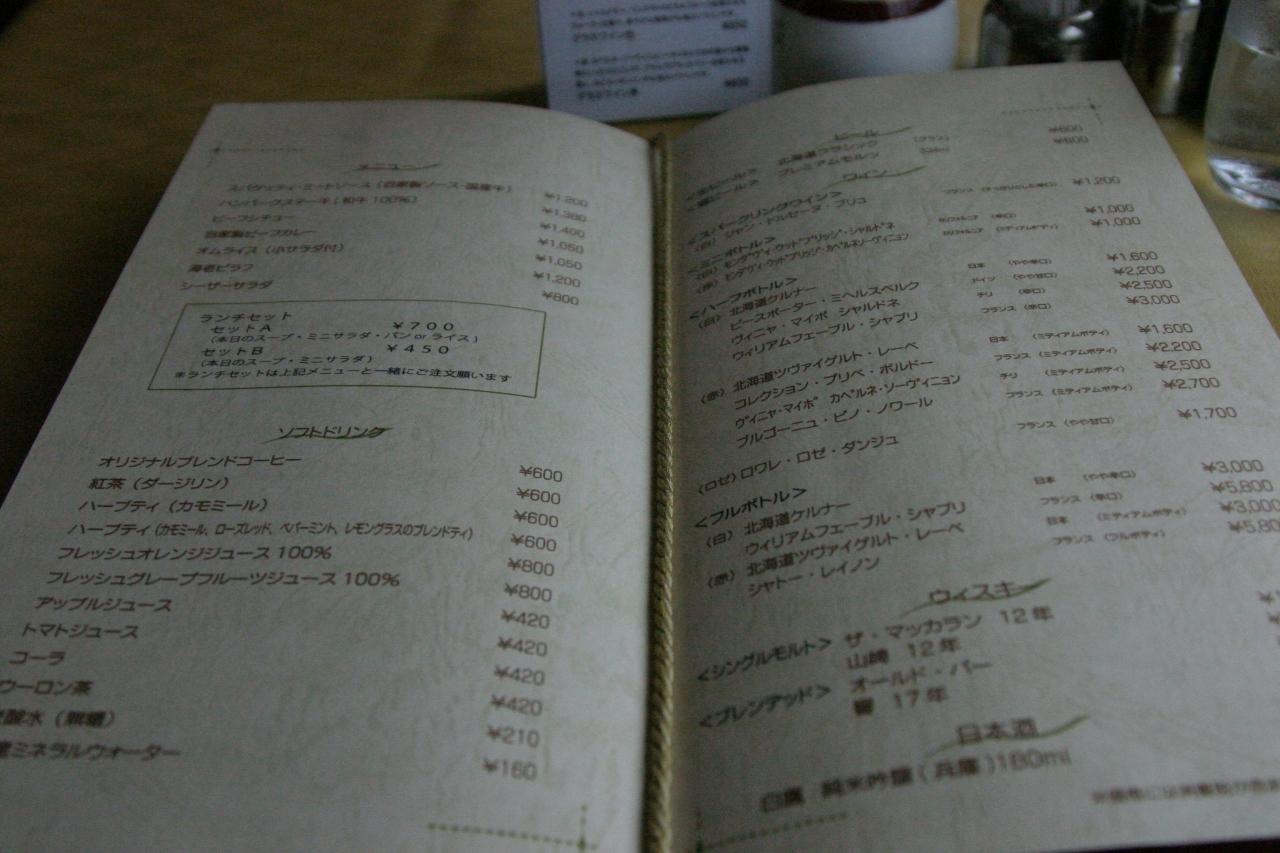 メニュー
スパゲッティ・ミートソース(自家製ソース・国産牛) ¥1,200
ハンバーグステーキ(和牛 100%) ¥1,380
ビーフシチュー ¥1,400
自家製ビーフカレー ¥1,050
オムライス(小サラダ付) ¥1,050
海老ピラフ ¥1,200
シーザーサラダ ¥800
ランチセット
セットA ¥700
(本日のスープ・ミニサラダ・パン or ライス)
セットB ¥450
(本日のスープ・ミニサラダ)
※ランチセットは上記メニューと一緒にご注文願います
ソフトドリンク
オリジナルブレンドコーヒー ¥600
紅茶(ダージリン) ¥600
ハーブティ(カモミール) ¥600
ハーブティ(カモミール、ローズレッド、ペパーミント、レモングラスのブレンドティ) ¥600
フレッシュオレンジジュース 100% ¥800
フレッシュグレープフルーツジュース 100% ¥800
アップルジュース ¥420
トマトジュース ¥420
コーラ ¥420
ウーロン茶 ¥420
酸水(無糖) ¥210
ミネラルウォーター ¥160
ビール
<生ビール> 北海道クラシック (グラス) ¥600
プレミアムモルツ ¥600
ワイン
<スパークリングワイン>
(白) ジャン・ドルセーヌ・ブリュ フランス (すっきりとした辛口) ¥1,200
<ミニボトル>
(白) モンダヴィ・ウッドブリッジ・シャルドネ カリフォルニア (辛口) ¥1,000
(赤) モンダヴィ・ウッドブリッジ・カベルネソーヴィニヨン カリフォルニア (ミディアムボディ) ¥1,000
<ハーフボトル>
(白) 北海道ケルナー 日本 (やや辛口) ¥1,600
ピースポーター・ミヘルスベルク ドイツ (やや甘口) ¥2,200
ヴィニャ・マイポ シャルドネ チリ (辛口) ¥2,500
ウィリアムフェーブル・シャブリ フランス (辛口) ¥3,000
(赤) 北海道ツヴァイゲルト・レーベ 日本 (ミディアムボディ) ¥1,600
コレクション・プリベ・ボルドー フランス (ミディアムボディ) ¥2,200
ヴィニャ・マイポ カベルネ・ソーヴィニョン チリ (ミディアムボディ) ¥2,500
ブルゴーニュ・ピノ・ノワール フランス (ミディアムボディ) ¥2,700
(ロゼ) ロワレ・ロゼ・ダンジュ フランス (やや甘口) ¥1,700
<フルボトル>
(白) 北海道ケルナー 日本 (やや辛口) ¥3,000
ウィリアムフェーブル・シャブリ フランス (辛口) ¥5,800
(赤) 北海道ツヴァイゲルト・レーベ 日本 (ミディアムボディ) ¥3,000
シャトー・レイノン フランス (フルボディ) ¥5,80
ウィスキー
<シングルモルト> ザ・マッカラン 12年
山崎 12年
<ブレンデッド> オールド・パー
響 17年
日本酒
白鷹 純米吟醸(兵庫)180ml